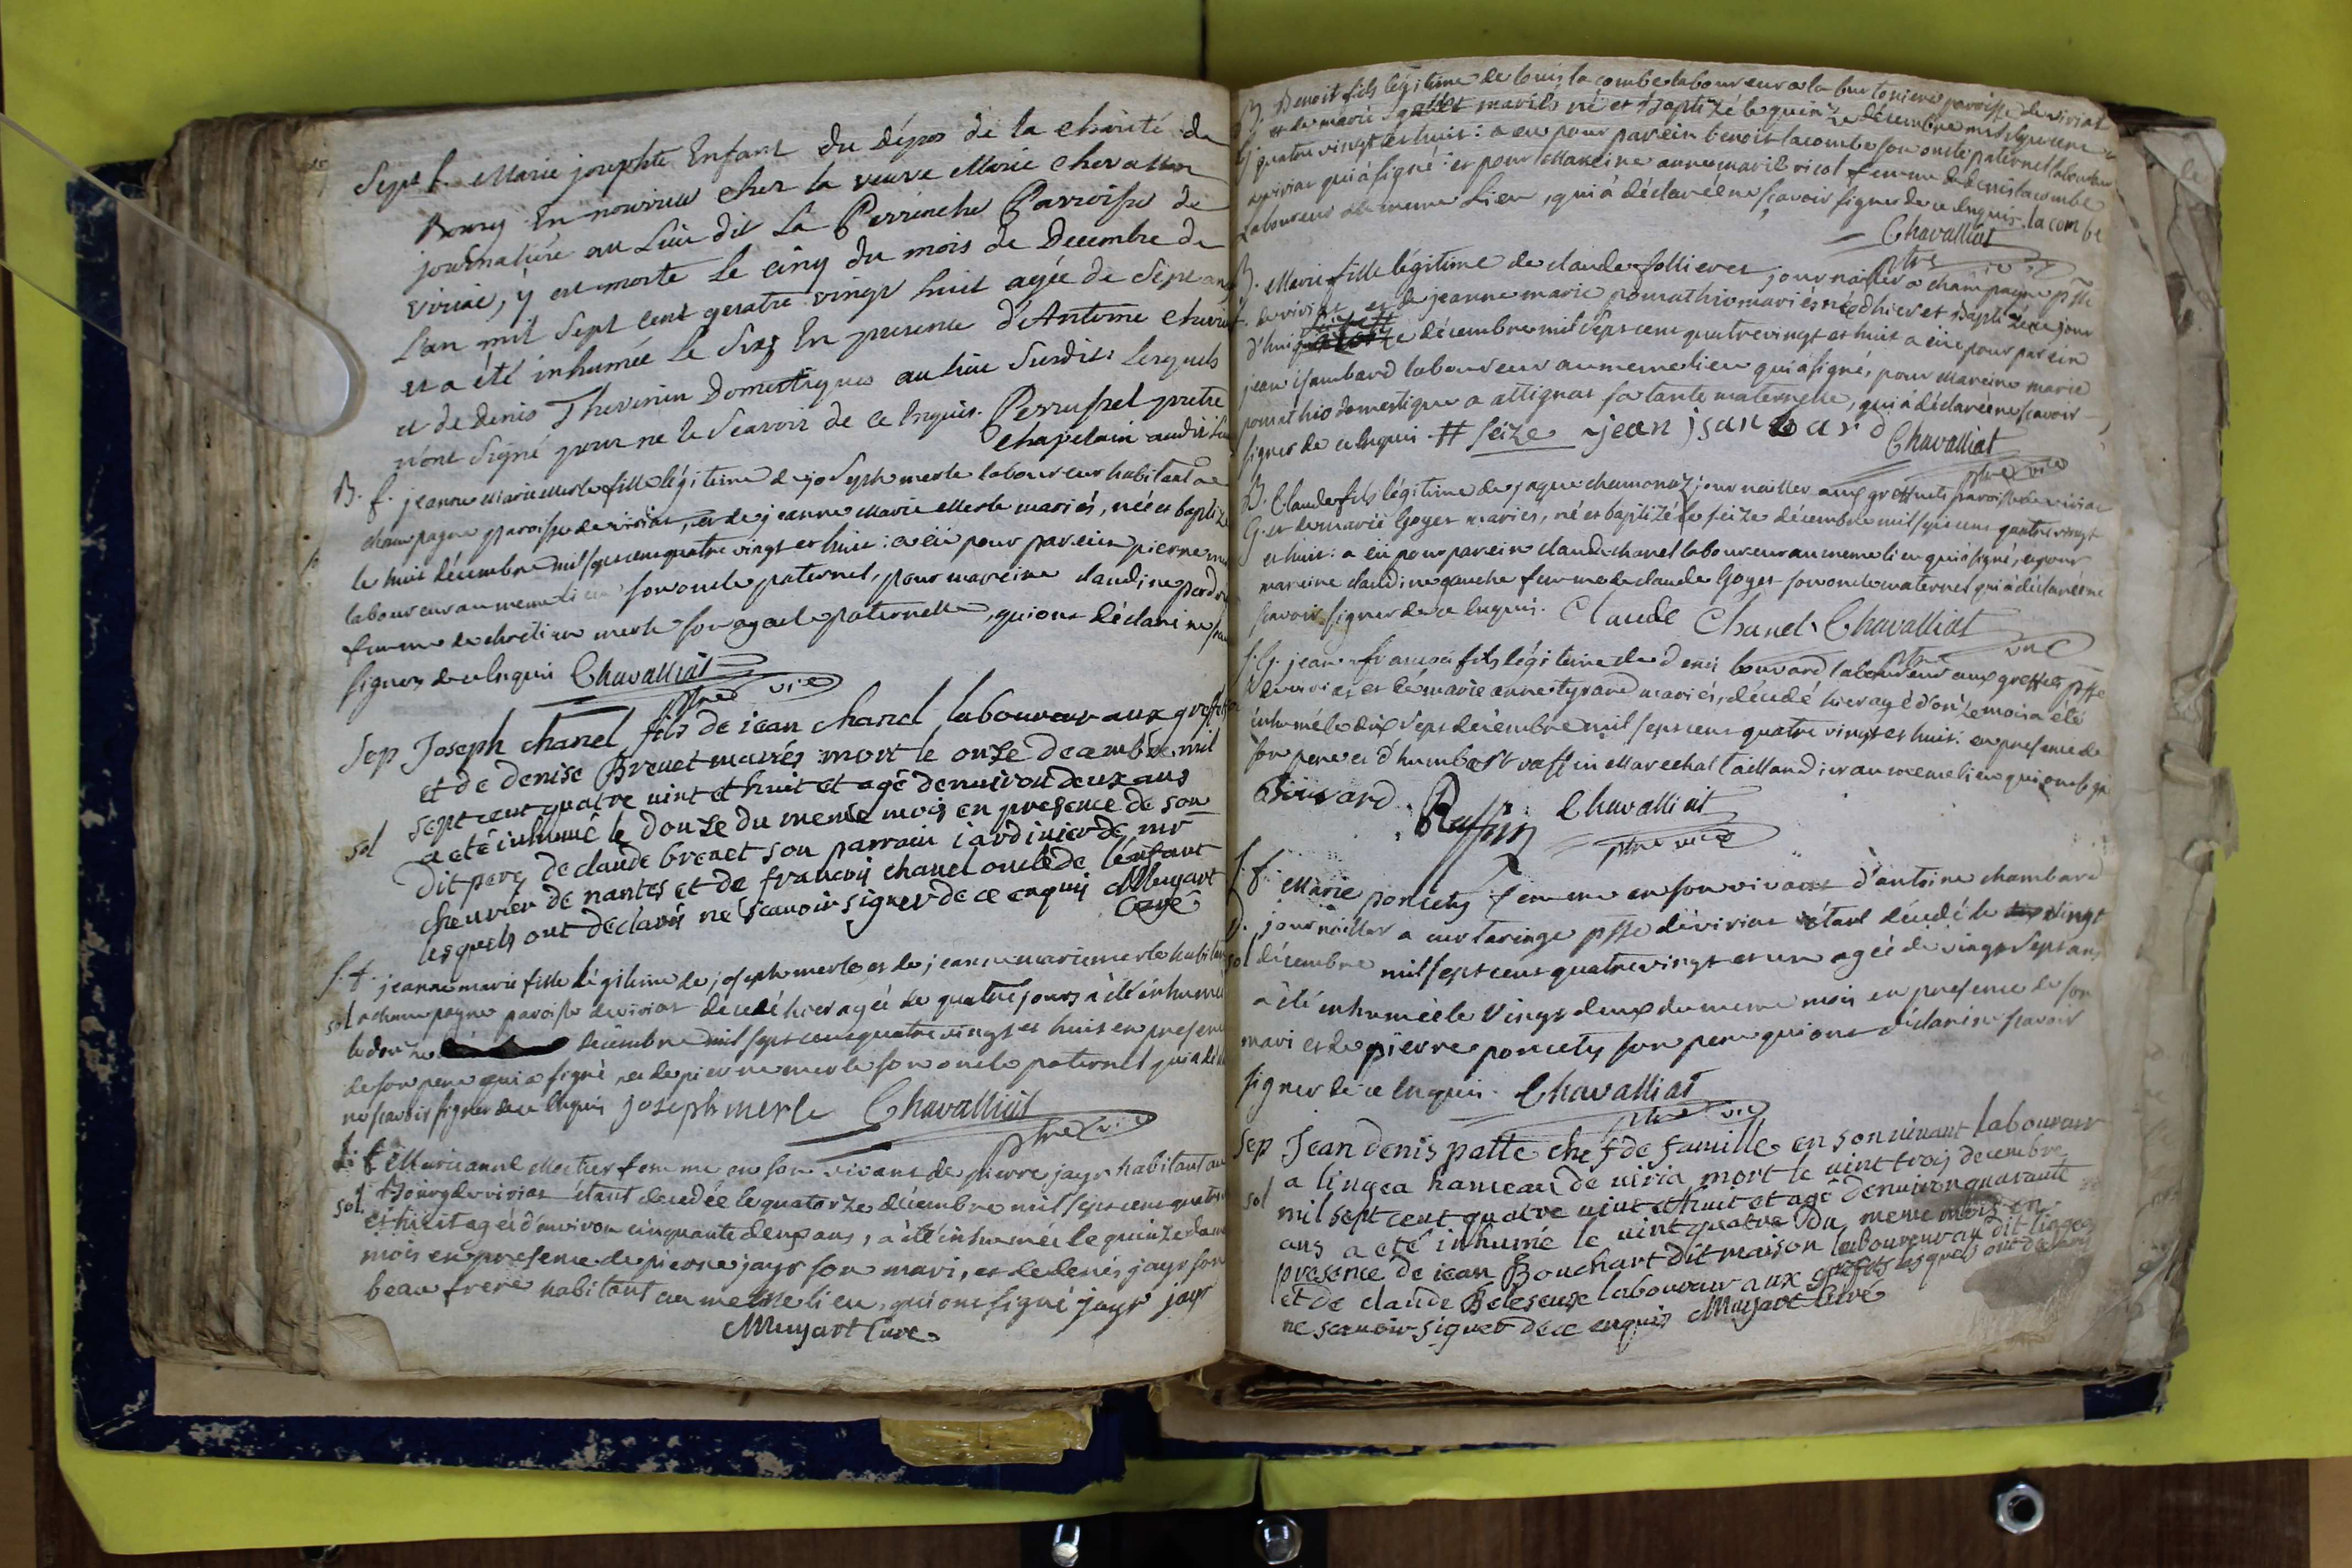 Sept f. Marie josephte Enfant du Dépos de la charité de
Bourg En nourrice chez la veuve Marie chevallon
journaliere au Lieu dit La Perrinche Parroisse de
viriac, y est morte Le cinq du mois de Decembre de
L'an mil Sept cent quatre vingt huit agée de Sept ans
et a été inhumée Le Six En presence d'Antoine
et de Denis Thevenin Domestiques au lieu Susdit: Lesquels
n'ont Signé pour ne le Scavoir de ce Enquis. Perruset pretre
chapelain audit lieu
B. f. jeanne Marie Merle fille légitime de joseph merle laboureur habitant a
champagne paroisse de viriat, et de jeanne Marie Merle mariés, née et baptizé
le huit décembre mil sept cent quatre vingt et huit: a eü pour parein pierre
laboureur au meme lieu son oncle paternel, pour mareine claudine
femme de chretien merle son ayaule paternelle, qui ont déclaré ne
signer de ce Enquis Chavalliat
ptre vic
Sep Joseph chanel fils de iean chanel laboureur aux greffets
et de denise Brevet mariés mort le onze decembre mil
sept cent quatre vint et huit et agé denviron deux ans
sol a eté inhumé le douze du meme mois en presence de son
dit pere de claude brevet son parrain iardinier de mr
chevrier de nantes et de francois chanel oncle de lenfant
lesquels ont declarés ne scauoir signer de ce enquis Muyart
Curé
S. f. jeanne marie fille légitime de joseph merle et de jeanne marie merle habitant
sol a champagne paroisse de viriat décedé hier agée de quatre jours a été inhumé
le douze décembre mil sept cent quatre vingt et huit en presence
de son pere qui a signé, et de pierre merle son oncle paternel qui a
ne scavoir signer de ce Enquis joseph merle Chavalliat
ptre vic
S. f. Marie anne femme en son vivant de pierre jayr habitant au
sol Bourg de viriat étant décedée le quatorze décembre mil sept cent quatre
et huit agée d'environ cinquante deux ans, a été inhumée le quinze du
mois en presence de pierre jayr son mari, et de denis jayr son
beau frere habitant au meme lieu, qui ont signé jayr jayr
Muyart Curé
B. Benoit fils légitime de louis la combe laboureur a la bertoniere paroisse de viriat
G et de marie mariés né et Baptizé le quinze décembre mil sept cent
quatre vingt et huit: a eu pour parein benoit lacombe son oncle paternel laboureur
a viriat qui a signé et pour Mareine anne marie ricol femme de denis lacombe
Laboureur au meme Lieu, qui a déclarée ne scavoir signer de ce Enquis. la combe
Chavalliat
ptre vic
B. Marie fille légitime de claude follieret journailler a champagne psse
f. de viriat et de jeanne marie pomathio mariés née d'hier et Baptizée ce jour
d'hui décembre mil sept cent quatre vingt et huit a eüe pour parein
jean isambard laboureur au meme lieu qui a signé, pour Mareine marie
pomathio domestique a attignat sa tante maternelle, qui a déclarée ne scavoir
signer de ce Enquis. # seize jean jsanbard Chavalliat
ptre vic
B. Claude fils légitime de jaque chamonaz journailler aux greffets paroisse de viriat
G. et de marie Goyet mariés, né et baptizé le seize décembre mil sept cent quatre vingt
et huit: a eü pour parein claude chanel laboureur au meme lieu qui a signé, et pour
mareine claudine gauche femme de claude Goyet son oncle maternel qui a déclarée ne
scavoir signer de ce Enquis. Claude Chanel Chavalliat
ptre vic
S. G. jean francois fils légitime de denis bouvard laboureur aux greffets psse
de viriat et de marie anne tyrand mariés, décedé hier agé d'onze mois a été
inhumé le dix sept décembre mil sept cent quatre vingt et huit: en presence de
son pere et d'humbert raffin Marechal taillandier au meme lieu qui ont signé
Bouvard. Raffin Chavalliat
ptre vic
S. f. Marie poncety femme en son vivant d'antoine chambard
D. journailler a curtaringe psse de viriat étant décedé le vingt
sol décembre mil sept cent quatre vingt et un agée de vingt sept ans
a été inhumée le Vingt deux du meme mois en presence de son
mari et de pierre poncety son pere qui ont déclaré ne scavoir
signer de ce Enquis. Chavalliat
ptre vic
Sep Jean denis patte chef de famille en son uiuant laboureur
a lingea hameau de uiria mort le uint trois decembre
sol mil sept cent quatre uint et huit et agé denuiron quarante
ans a eté inhumé le uint quatre du meme mois en
presence de iean Bouchart dit maison laboureur au dit lingea
et de claude laboureur aux greffets lesquels ont declaré
ne scauoir signer de ce enquis Muyart Curé